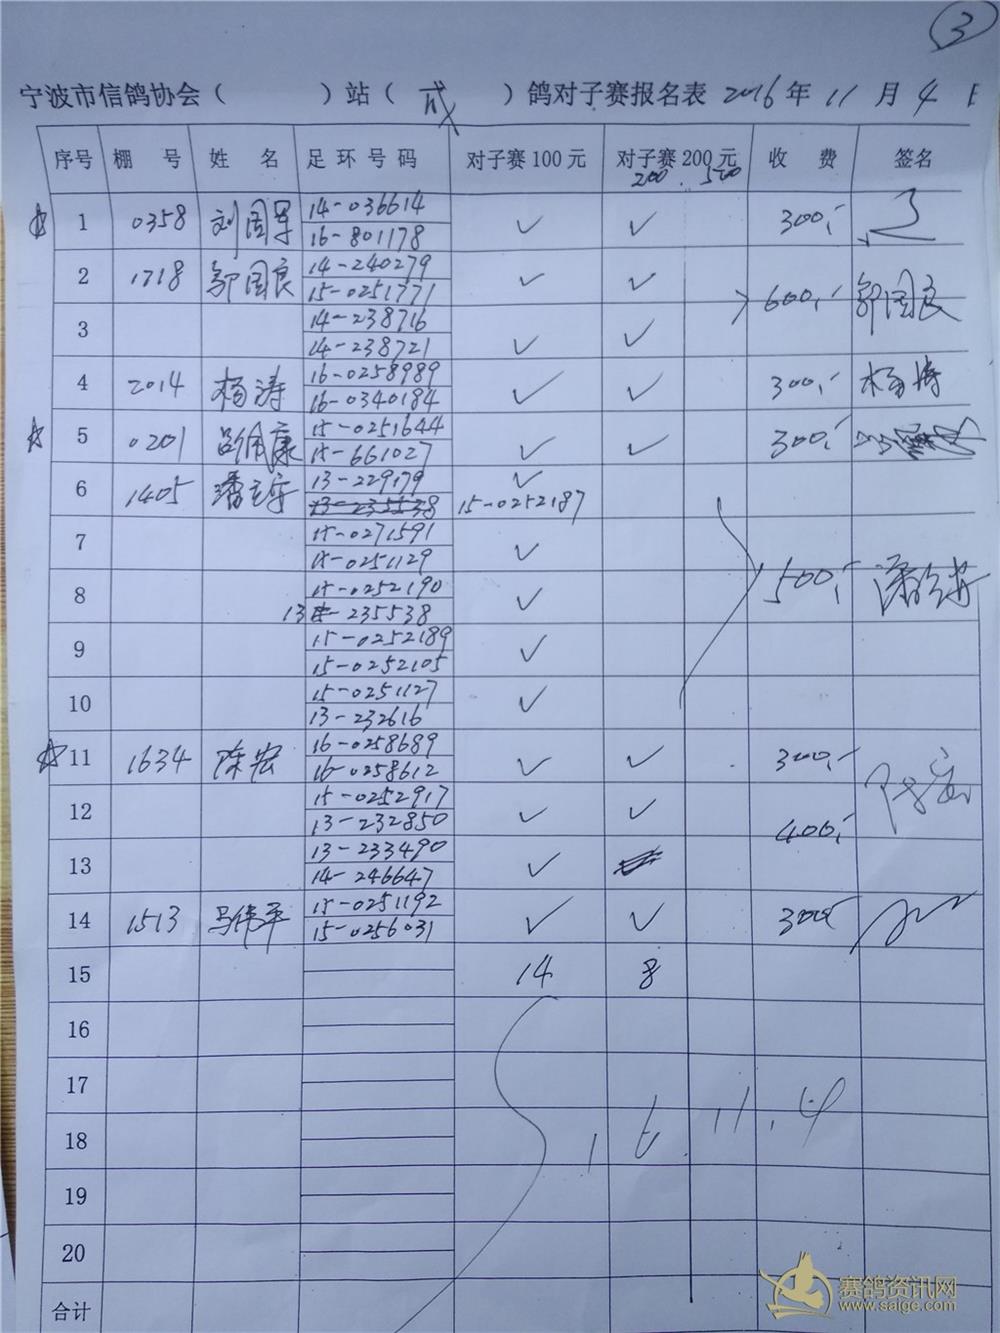 3
宁波市信鸽协会（ ）站（ 成 ）鸽对子赛报名表 2016 年 11 月 4 日
序号 棚 号 姓 名 足环号码 对子赛100元 对子赛200元 收 费 签名
200 500
☆ 1 0358 刘国军 14-036614 ✓ ✓ 300,-
16-801178
2 1718 邬国良 14-240279 ✓ ✓ 600,- 邬国良
15-0251771
3 14-238716 ✓ ✓
14-238721
4 2014 杨涛 16-0258989 ✓ ✓ 300,- 杨涛
16-0340184
☆ 5 0201 吕佩康 15-0251644 ✓ ✓ 300,-
15-661027
6 1405 13-229179 ✓
13-235538 15-0252187
7 15-0271591 ✓
15-0251129
8 15-0252190 ✓ 500,-
13 15-235538
9 15-0252189 ✓
15-0252105
10 15-0251127 ✓
13-232616
☆ 11 1634 陈宏 16-0258689 ✓ ✓ 300,- 陈宏
16-0258612
12 15-0252917 ✓ ✓ 400,-
13-232850
13 13-233490 ✓
14-246647
14 1513 马伟平 15-0251192 ✓ ✓ 300,-
15-0256031
15 14 8
16
17
18 16.11.4
19
20
合计
赛鸽资讯网
www.saige.com